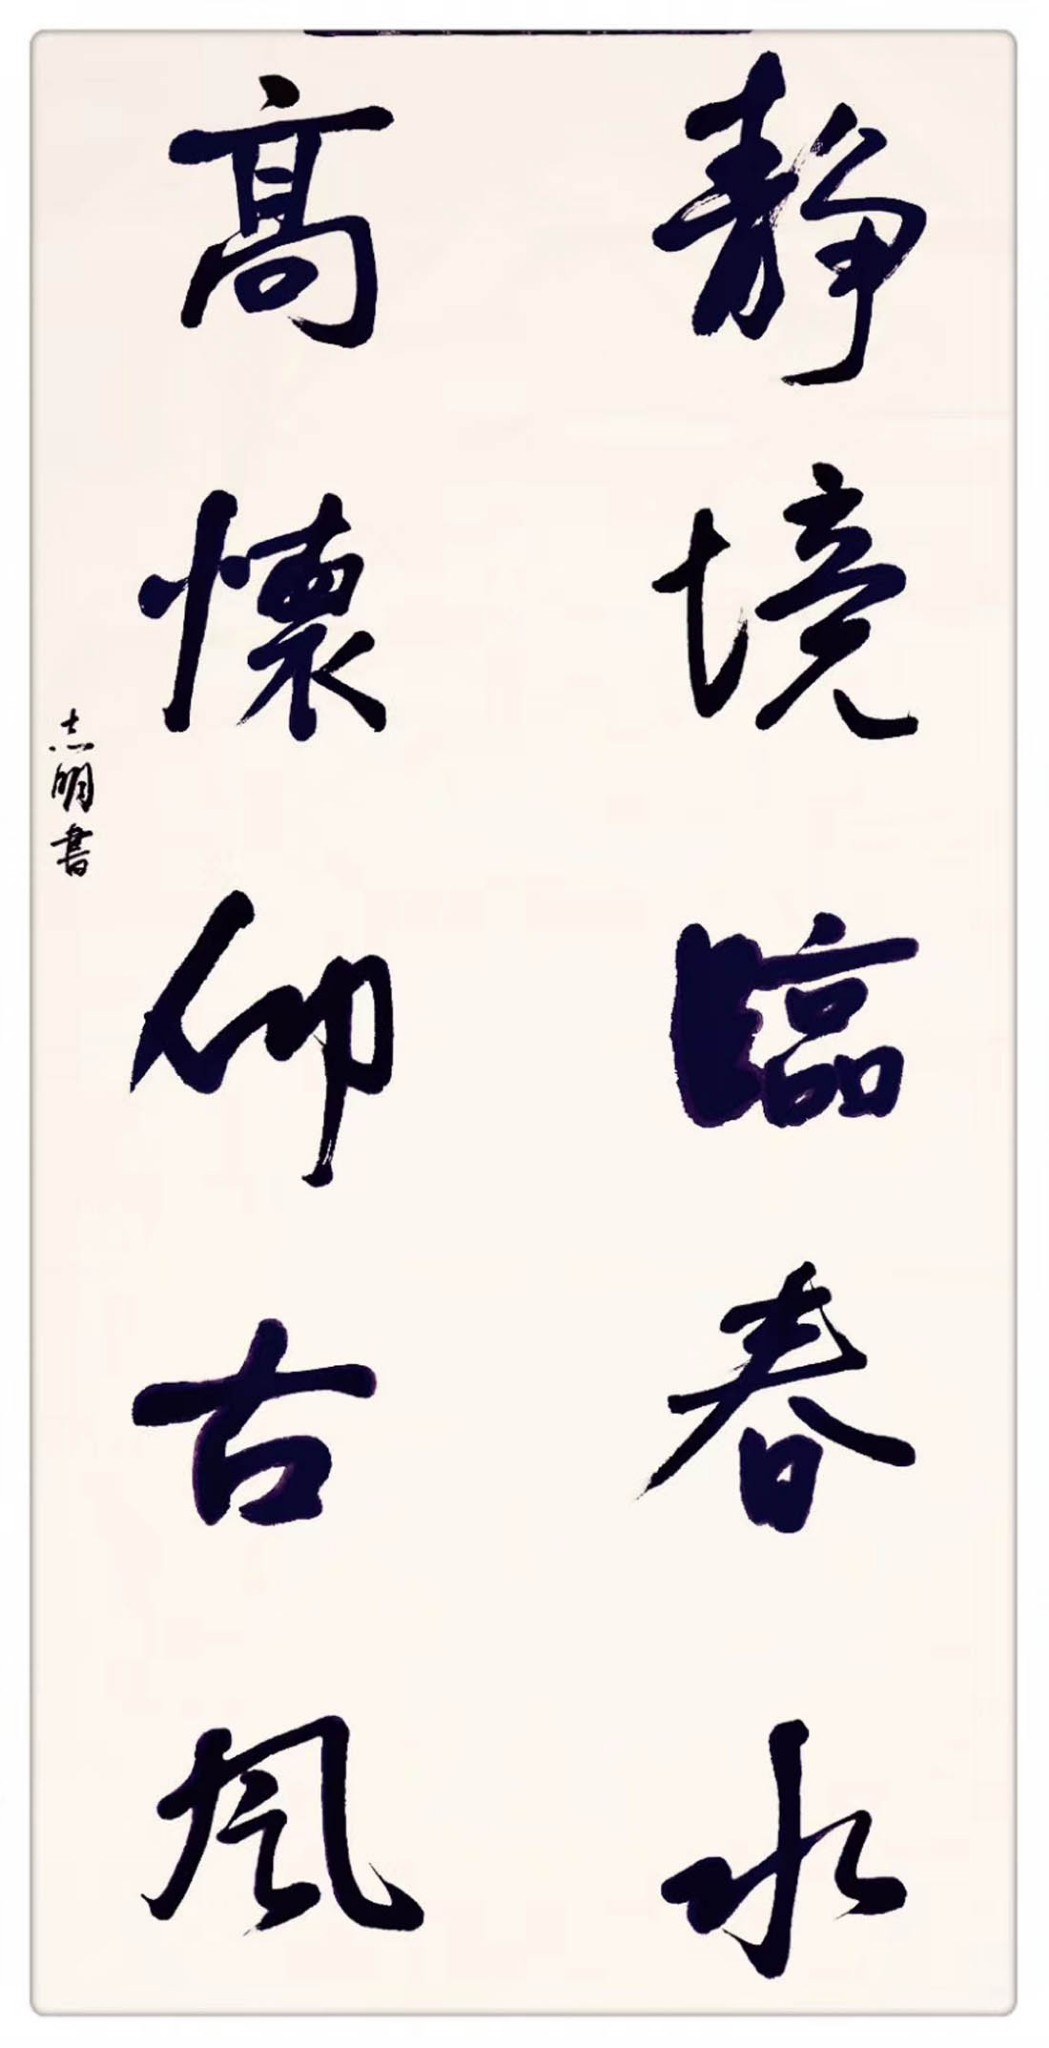 靜境臨春水
高懷仰古風
志明書